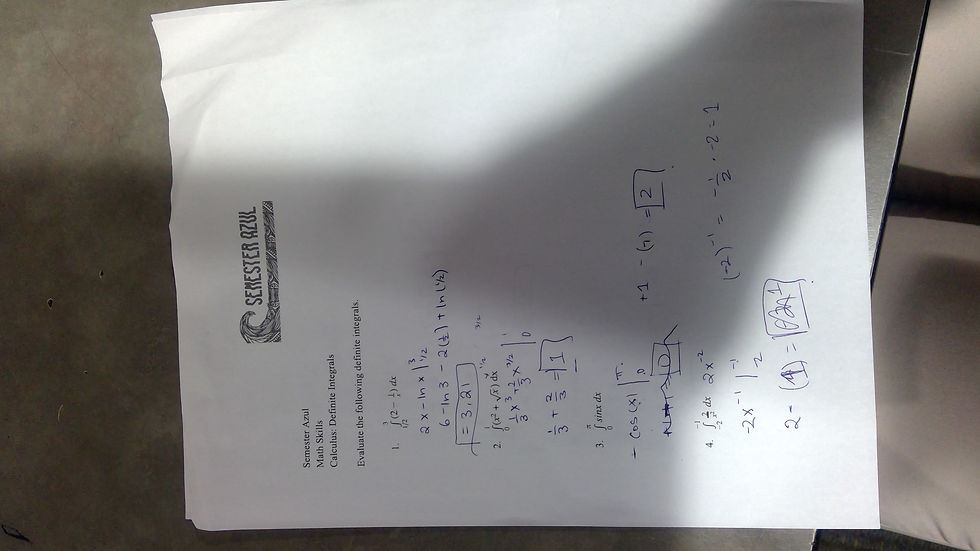 SEMESTER AZUL
Semester Azul
Math Skills
Calculus: Definite Integrals
Evaluate the following definite integrals.
1. ∫_{1/2}^{3} (2 − 1/x) dx
2x − ln x |_{1/2}^{3}
6 − ln 3 − 2(½) + ln(½)
= 3,21
2. ∫_{0}^{1} (x² + √x) dx
1/3 x³ + 2/3 x^{3/2} |_{0}^{1}
1/3 + 2/3 = 1
3. ∫_{0}^{π} sin x dx
− cos(x) |_{0}^{π} +1 − (-1) = 2
4. ∫_{-2}^{-1} 2/x² dx 2x⁻²
-2x⁻¹ |_{-2}^{-1} (-2)⁻¹ = -1/2 · -2 = 1
2 - (1) =